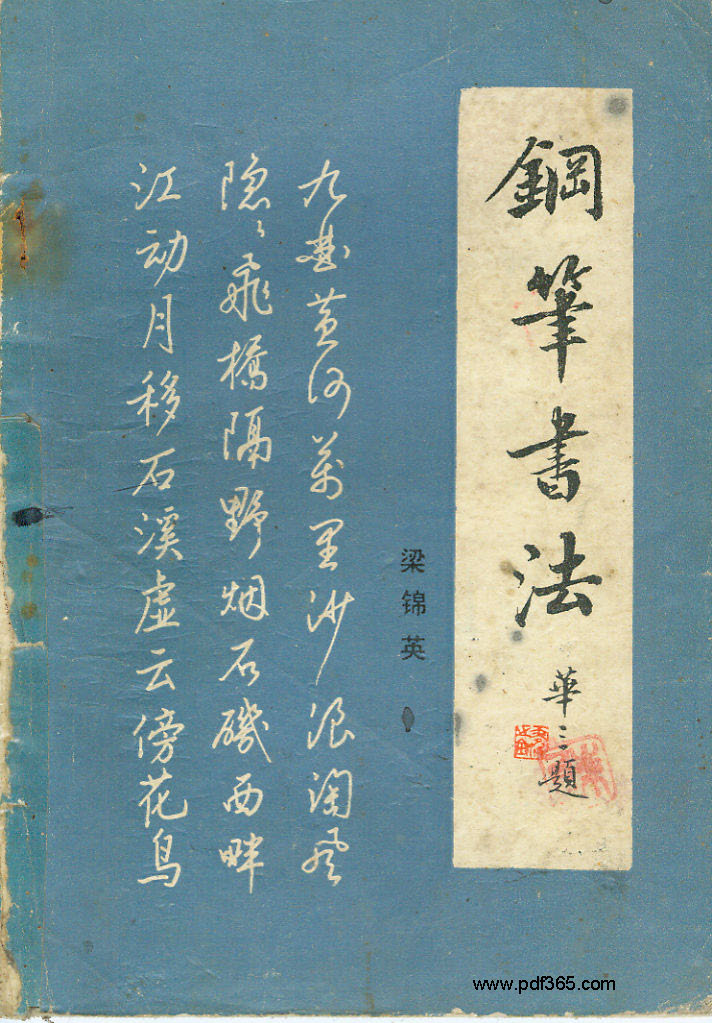 鋼筆書法
華三題
梁锦英
九曲黄河萬里沙浪淘风
隐々飛橋隔野烟石磯西畔
江动月移石溪虚云傍花鸟
www.pdf365.com